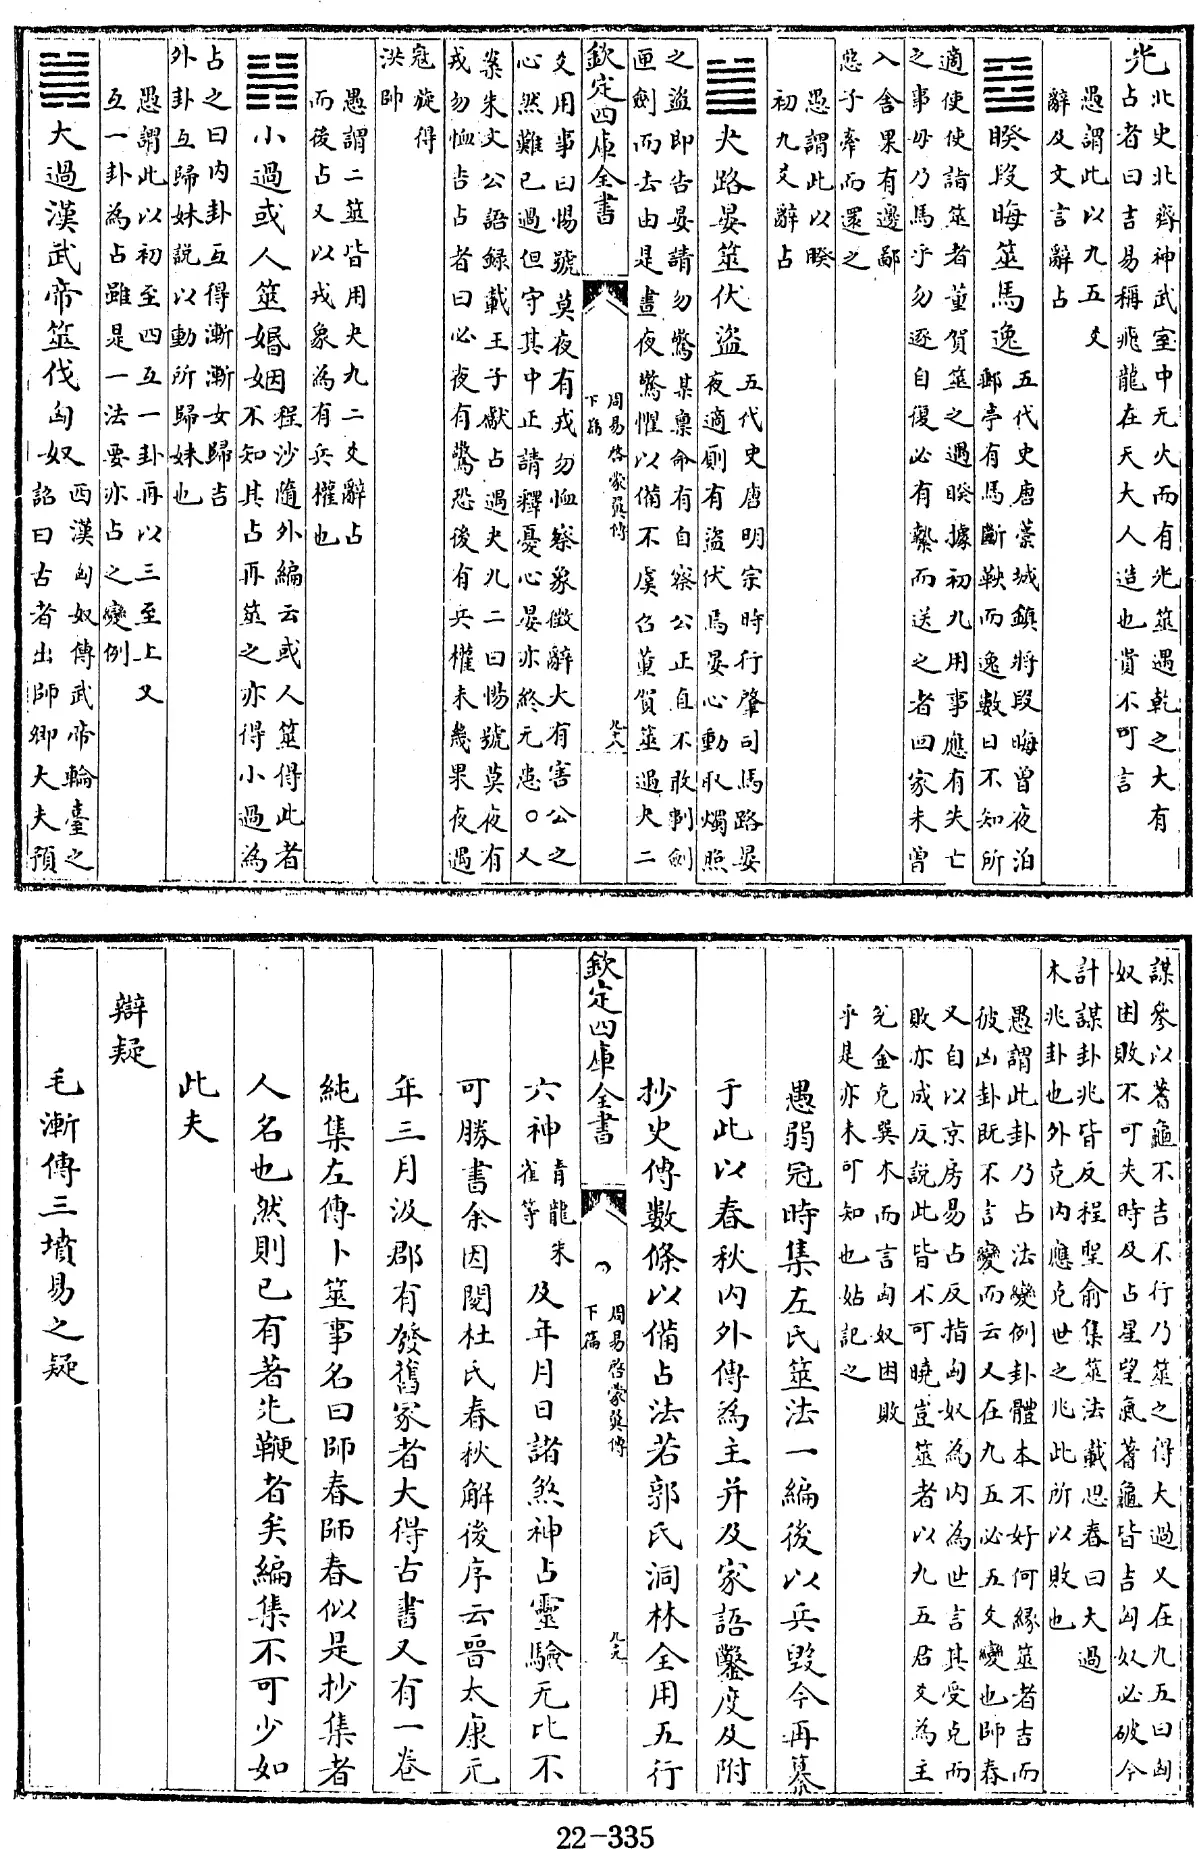 北史北齊神武室中无火而有光筮遇乾之大有
光占者曰吉易稱飛龍在天大人造也貴不可言
愚謂此以九五爻
辭及文言辭占
睽段晦筮馬逸
五代史唐藁城鎮將段晦曾夜泊
郵亭有馬斷鞅而逸數日不知所
適使使詣筮者董賀筮之遇睽據初九用事應有失亡
之事毋乃馬乎勿逐自復必有縶而送之者回家未曾
入舍果有邊鄙
惡子牽而還之
愚謂此以睽
初九爻辭占
夬路晏筮伏盜
五代史唐明宗時行肇司馬路晏
夜適廁有盜伏焉晏心動取燭照
之盜即告晏請勿驚某稟命有自察公正直不敢剚劍
匣劍而去由是晝夜驚懼以備不虞召董賀筮遇夬二
欽定四庫全書
周易啓蒙翼傳
下篇
九十八
爻用事曰惕號莫夜有戎勿恤察象徵辭大有害公之
心然難已過但守其中正請釋憂心晏亦終无患○又
案朱文公語録載王子獻占遇夬九二曰惕號莫夜有
戎勿恤吉占者曰必夜有驚恐後有兵權未幾果夜遇
寇旋得
洪帥
愚謂二筮皆用夬九二爻辭占
而後占又以戎象為有兵權也
小過或人筮婚姻
程沙隨外編云或人筮得此者
不知其占再筮之亦得小過為
占之曰内卦互得漸漸女歸吉
外卦互歸妹説以動所歸妹也
愚謂此以初至四互一卦再以三至上又
互一卦為占雖是一法要亦占之變例
大過漢武帝筮伐匈奴
西漢匈奴傳武帝輪臺之
詔曰古者出師卿大夫預
謀參以蓍龜不吉不行乃筮之得大過爻在九五曰匈
奴困敗不可失時及占星望氣蓍龜皆吉匈奴必破今
計謀卦兆皆反程聖俞集筮法載思春曰大過
木兆卦也外克内應克世之兆此所以敗也
愚謂此卦乃占法變例卦體本不好何緣筮者吉而
彼凶卦既不言變而云爻在九五必五爻變也師春
又自以京房易占反指匈奴為内為世言其受克而
敗亦成反説此皆不可曉豈筮者以九五君爻為主
兊金克巽木而言匈奴困敗
乎是亦未可知也姑記之
愚弱冠時集左氏筮法一編後以兵毁今再纂
于此以春秋内外傳為主并及家語鑿度及附
抄史傳數條以備占法若郭氏洞林全用五行
欽定四庫全書
周易啓蒙翼傳
下篇
九十九
六神
青龍朱
雀等
及年月日諸煞神占靈驗无比不
可勝書余因閲杜氏春秋解後序云晉太康元
年三月汲郡有發舊冢者大得古書又有一卷
純集左傳卜筮事名曰師春師春似是抄集者
人名也然則已有著先鞭者矣編集不可少如
此夫
辯疑
毛漸傳三墳易之疑
22-335